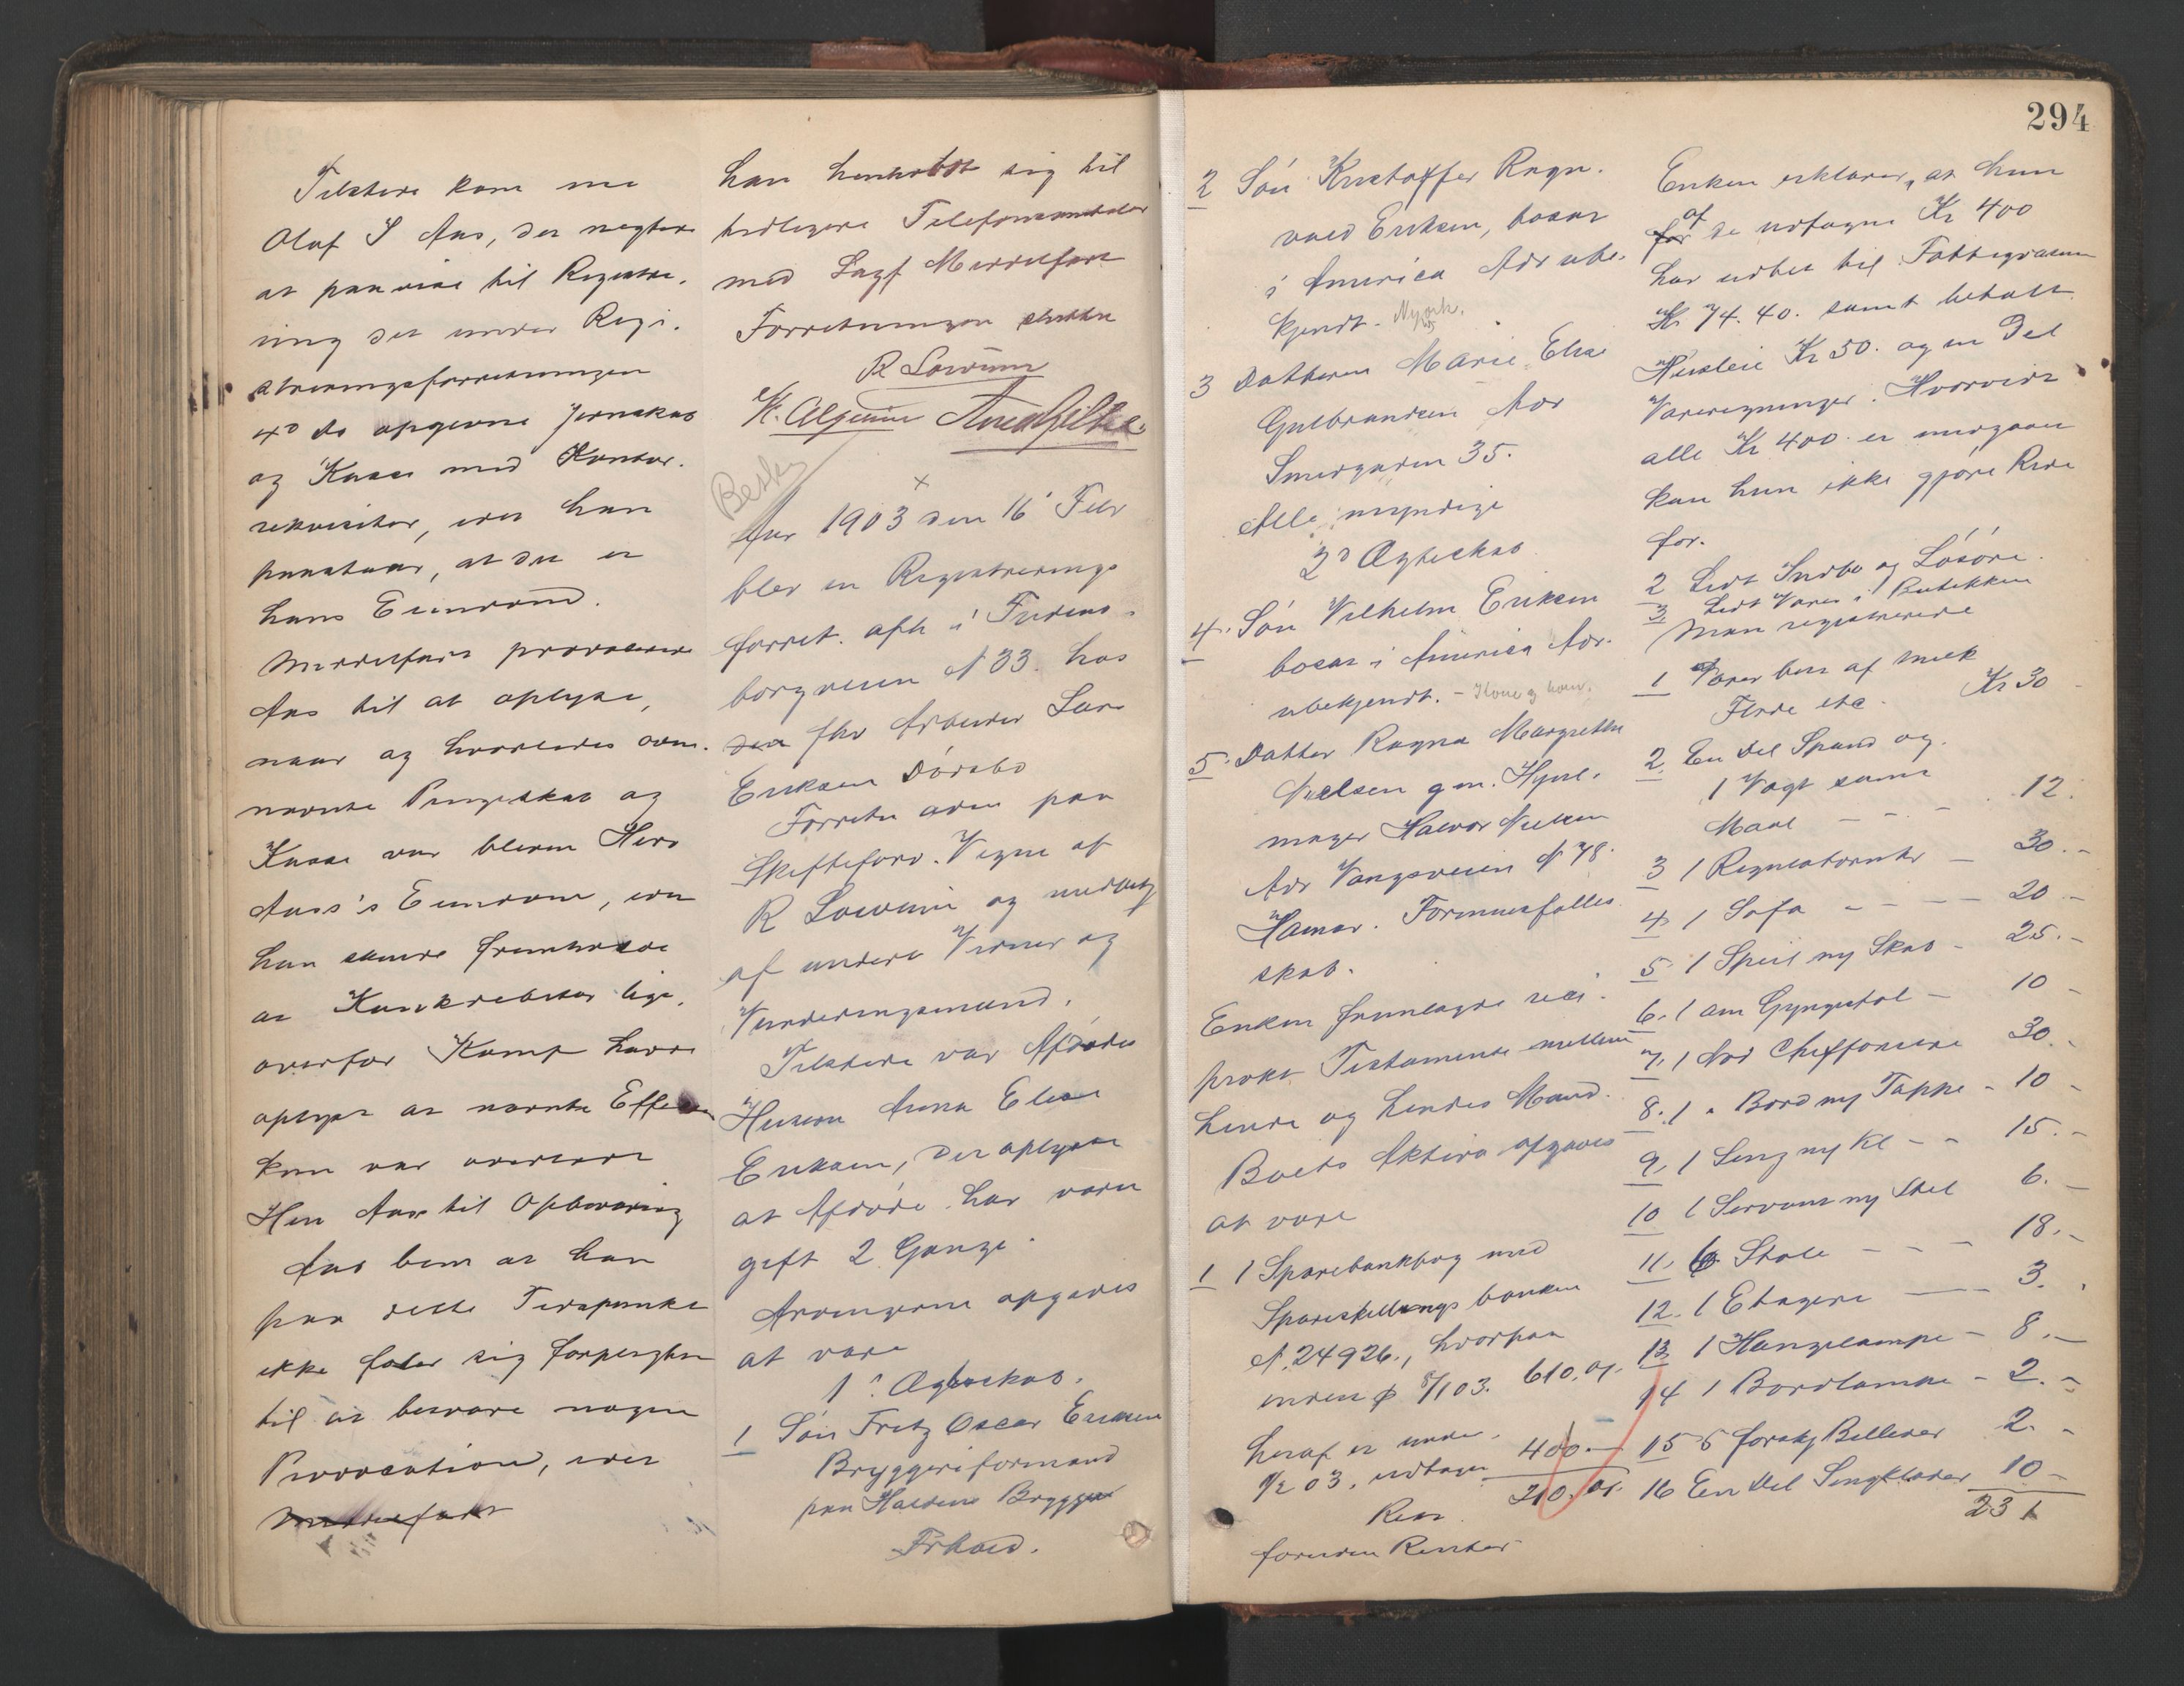 Tilstede kom nu
Olaf S Aas, der negter
at paavise til Registre-
ring det under Regi-
streringsforretningen
4de do opgivne Jernskab
og Kasse med Kontor-
rekvisiter, idet han
paastaar, at det er
hans Eiendom.
Middelfart provocerer
Aas til at oplyse,
naar og hvorledes oven-
nævnte Pengeskab og
Kasse var bleven Herr
Aas's Eiendom, idet
han skulde fremholde
at Konkdebitor lige-
overfor Kamp havde
oplyst at nævnte Effekter
kun var overladt
Herr Aas til Opbevaring
Aas bem at han
paa dette Tidspunkt
ikke føler sig forpligtet
til at besvare nogen
Provocation, idet
Middelfart
han henholdt sig til
tidligere Telefonsamtaler
med Sagf Middelfart
Forretningen sluttet
R Lowum
Besky
Aar 1903 den 16 Febr
blev en Registrerings
forret. afh i Tredens-
borgveien N 33. hos
den fhv Arbeider Lars
Eriksen Dørsbo
Forretn adm paa
Skifteforv. Vegne af
R Lowum og medbetj
af undert Vidner og
Vurderingsmænd.
Tilstede var Afdødes
Hustru Anna Elise
Eriksen, der oplyste
at Afdøde har været
gift 2 Gange.
Arvingerne opgaves
at være
1ste Ægteskab.
1 Søn Fritz Oscar Eriksen
Bryggeriformand
paa Haldens Bryggeri
Frhald.
294
2 Søn Kristoffer Ragn-
vald Eriksen, bosat
i America Adr ube-
kjendt. Nyork.
3 Datteren Marie Elise
Gulbrandsen Adr
Smedgaden 35.
Alle myndige
2d Ægteskab
4. Søn Vilhelm Eriksen
bosat i America Adr.
ubekjendt.
5. Datter Ragna Margrethe
Nielsen g m. Hjul-
mager Halvor Nielsen
Adr Vangsveien N 78.
Hamar. Formuesfælles
skab.
Enken fremlagde reci-
prokt Testamente mellem
hende og hendes Mand.
Boets Aktiva opgaves
at være
1 1 Sparebankbog med
Spareskillings banken
N. 24926., hvorpaa
inden p 8/1 03. 610.01.
heraf er unde-
9/2 03. udtaget 400 -
Rest 210.01.
foruden Renter
Enken erklærer, at hun
for af de udtagne Kr 400
har udbet til Fattigvæsenet
Kr 74.40. samt betalt
Husleie Kr 50. og en Del
Vareregninger. Hvorvidt
alle Kr 400 er medgaaet
kan hun ikke gjøre Rede
for.
2 Lidt Indbo og Løsøre.
3. Lidt Varer i Butikken
Man registrerede
1 Varer best af Melk
Fløde etc. Kr 30 -
2. En Del Spand og
1 Vægt samt
Maal - - - 12.
3 1 Regulatoruhr - 30.-
4 1 Sofa - - - 20 -
5. 1 Speil m Skab - 25.-
6. 1 am Gyngestol - 10 -
7. 1 Chiffoniere 30.-
8. 1 " Bord m Tæppe - 10 -
9. 1 Seng m Kl - - 15.-
10 1 Servant m Stel 6.-
11. 6 Stole - - - 18.-
12. 1 Etagere - 3.
13 1 Hængelampe - 8.-
14 1 Bordlampe - 2.-
15 5 forskj Billeder 2.-
16 En Del Sengklæder 10 -
231